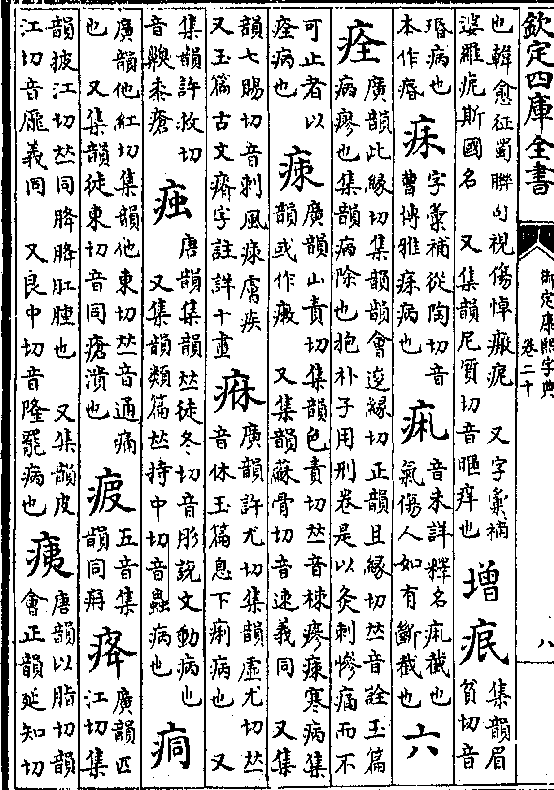 欽定四庫全書
御定康熙字典
卷二十
八
也韓愈征蜀聯句視傷悼瘢痆 又字彙補
婆羅痆斯國名 又集韻尼質切音暱痒也
增
集韻眉
貧切音
珉病也
本作痻
字彙補從陶切音
曹博雅病也
音未詳釋名截也
氣傷人如有斷截也
六
痊
廣韻此緣切集韻韻會逡緣切正韻且緣切𠀤音詮玉篇
病瘳也集韻病除也抱朴子用刑卷是以灸刺慘痛而不
可止者以
痊病也
㾊
廣韻山責切集韻色責切𠀤音㾊寒病集
韻或作 又集韻蘇骨切音速義同 又集
韻七賜切音刺風㾊膚疾
又玉篇古文瘠字註詳十畫
痳
廣韻許尤切集韻虛尤切𠀤
音休玉篇息下痢病也 又
集韻許救切
音齅黍瘡
痋
唐韻集韻𠀤徒冬切音彤說文動病也
又集韻類篇𠀤持中切音蟲病也
痌
廣韻他紅切集韻他東切𠀤音通痛
也 又集韻徒東切音同瘡潰也
五音集
韻同
㾀
廣韻匹
江切集
韻披江切𠀤同胮胮肛腫也 又集韻皮
江切音龐義同 又良中切音隆罷病也
痍
唐韻以脂切韻
會正韻延知切